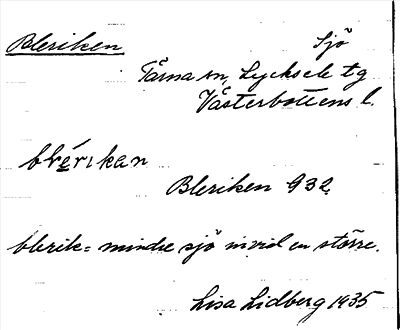 Bleriken Sjö
Tärna sn, Lycksele tg
Västerbottens l.
blérikan
Bleriken 932
blerik = mindre sjö invid en större.
Lisa Lidberg 1935